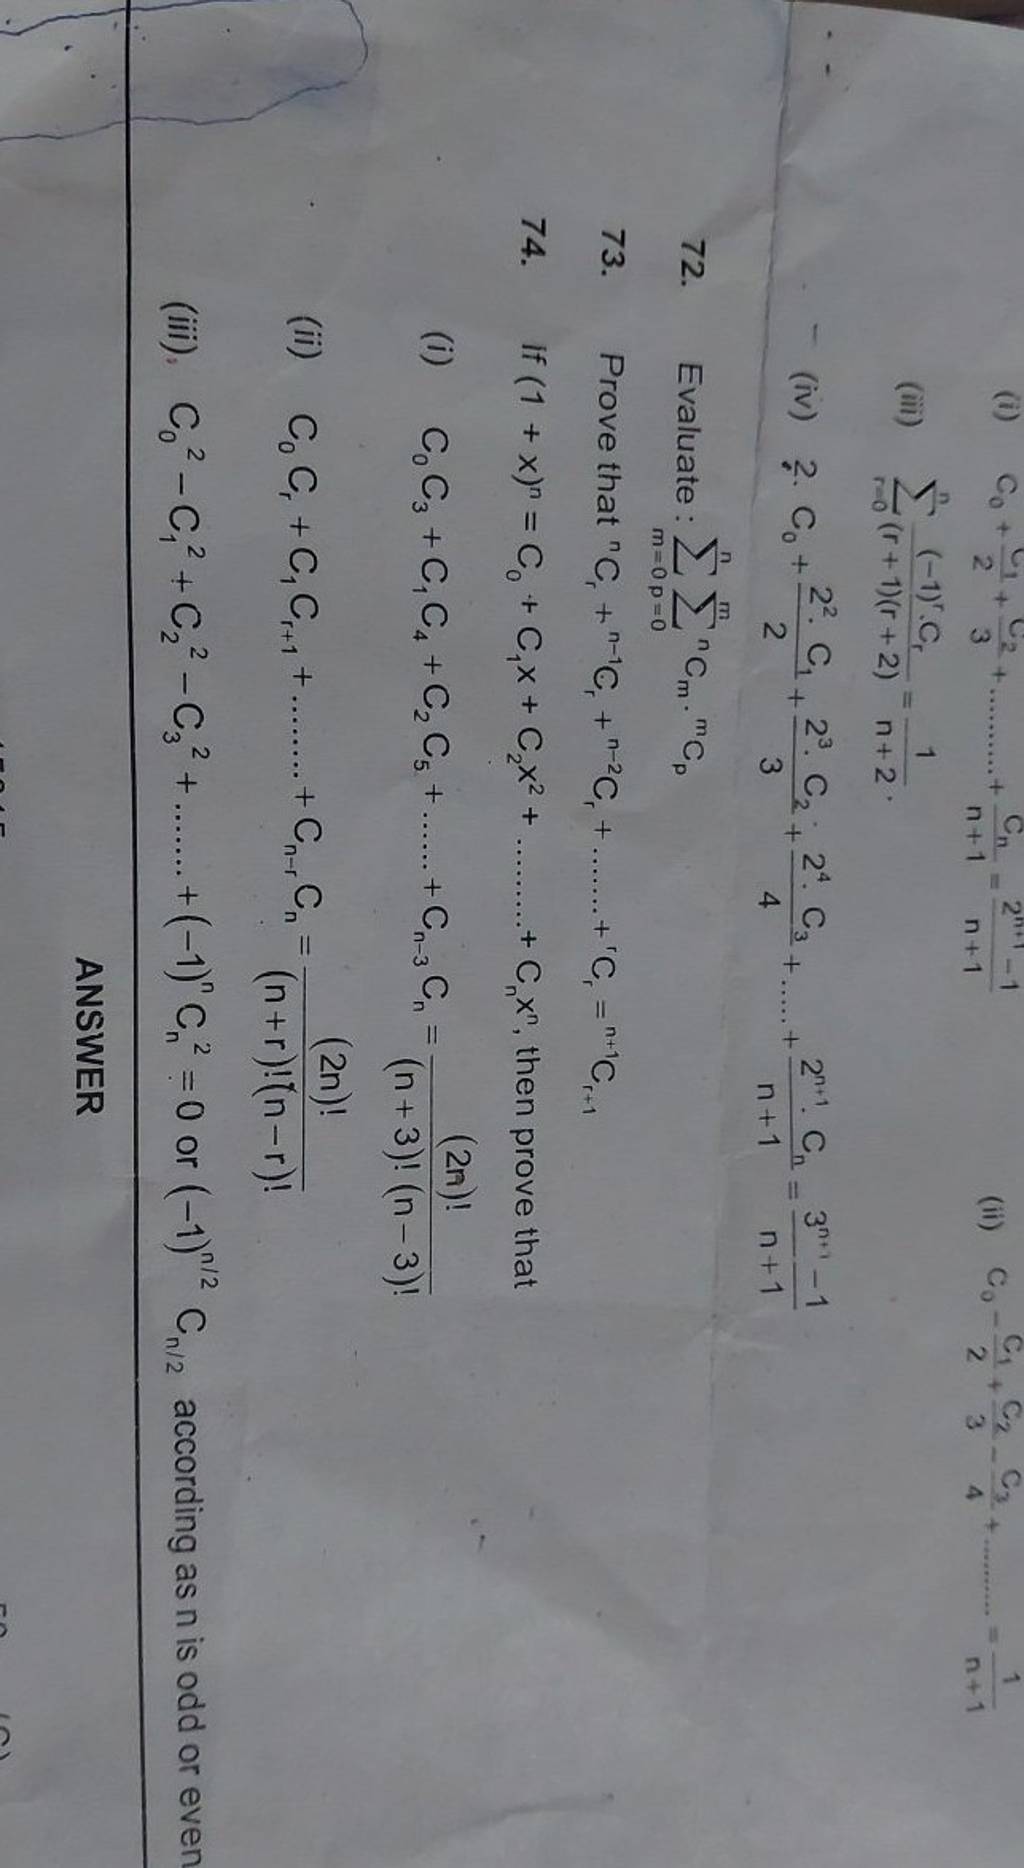 (i) C₀ + C₁/2 + C₂/3 + .......... + Cₙ/(n+1) = (2ⁿ⁺¹ – 1)/(n+1) (ii) C₀ – C₁/2 + C₂/3 – C₃/4 + .......... = 1/(n+1)
(iii) ∑ᵣ₌₀ⁿ (–1)ʳ.Cᵣ/((r+1)(r+2)) = 1/(n+2) .
(iv) 2. C₀ + 2². C₁/2 + 2³. C₂/3 + 2⁴. C₃/4 + ...... + 2ⁿ⁺¹. Cₙ/(n+1) = (3ⁿ⁺¹ – 1)/(n+1)
72. Evaluate : ∑ₘ₌₀ⁿ ∑ₚ₌₀ᵐ ⁿCₘ. ᵐCₚ
73. Prove that ⁿCᵣ + ⁿ⁻¹Cᵣ + ⁿ⁻²Cᵣ + ........ + ʳCᵣ = ⁿ⁺¹Cᵣ₊₁
74. If (1 + x)ⁿ = C₀ + C₁x + C₂x² + .......... + Cₙxⁿ, then prove that
(i) C₀C₃ + C₁C₄ + C₂C₅ + ....... + Cₙ₋₃Cₙ = (2n)!/((n+3)! (n–3)!)
(ii) C₀Cᵣ + C₁Cᵣ₊₁ + ......... + Cₙ₋ᵣCₙ = (2n)!/((n+r)!(n–r)!)
(iii) C₀² – C₁² + C₂² – C₃² + ........ + (–1)ⁿCₙ² = 0 or (–1)^(n/2) C_(n/2) according as n is odd or even
ANSWER